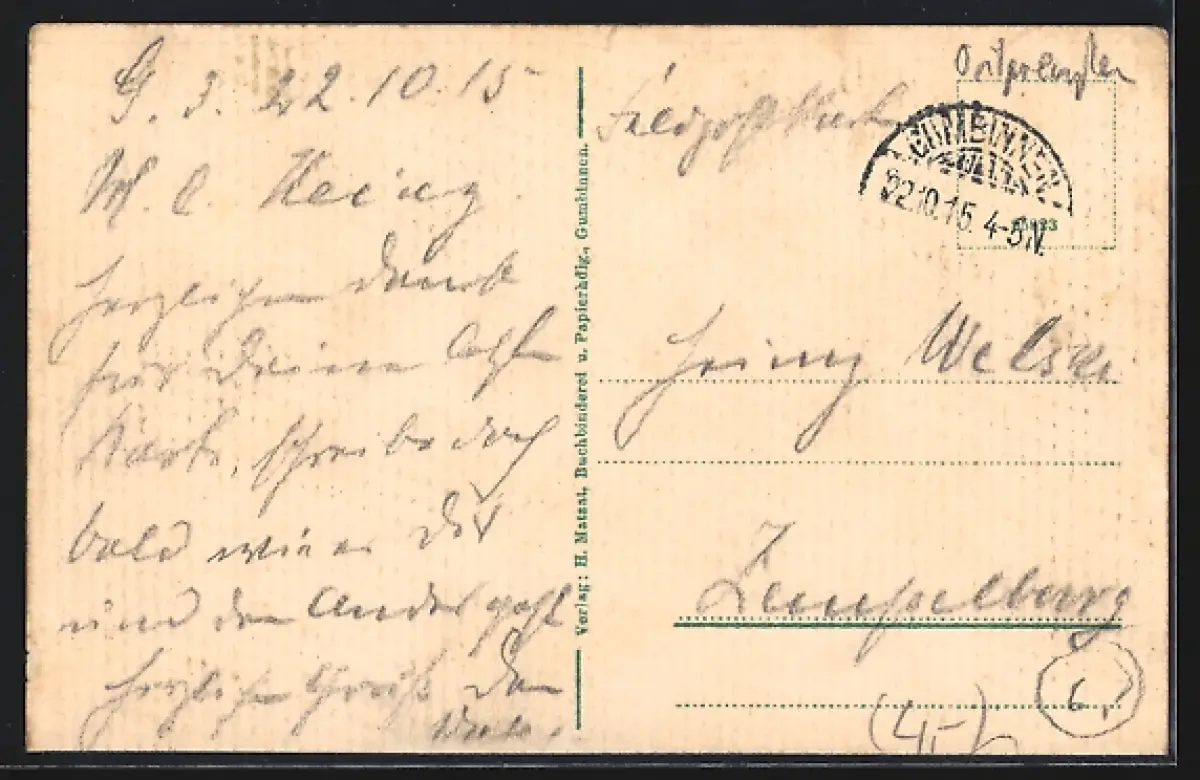 G. 3. 22.10.15
M. l. Heinz
herzlichen Dank
für Deine
Karte, schreibe doch
bald wie es Dir
und den geht
herzlichen Gruß Dein
Verlag: H. Matzat, Buchbinderei u. Papierhdlg., Gumbinnen.
Ostpreußen
Feldpostkarte
GUMBINNEN
22.10.15. 4-5N.
Heinz Welski
Zempelburg
(4,-)
6,